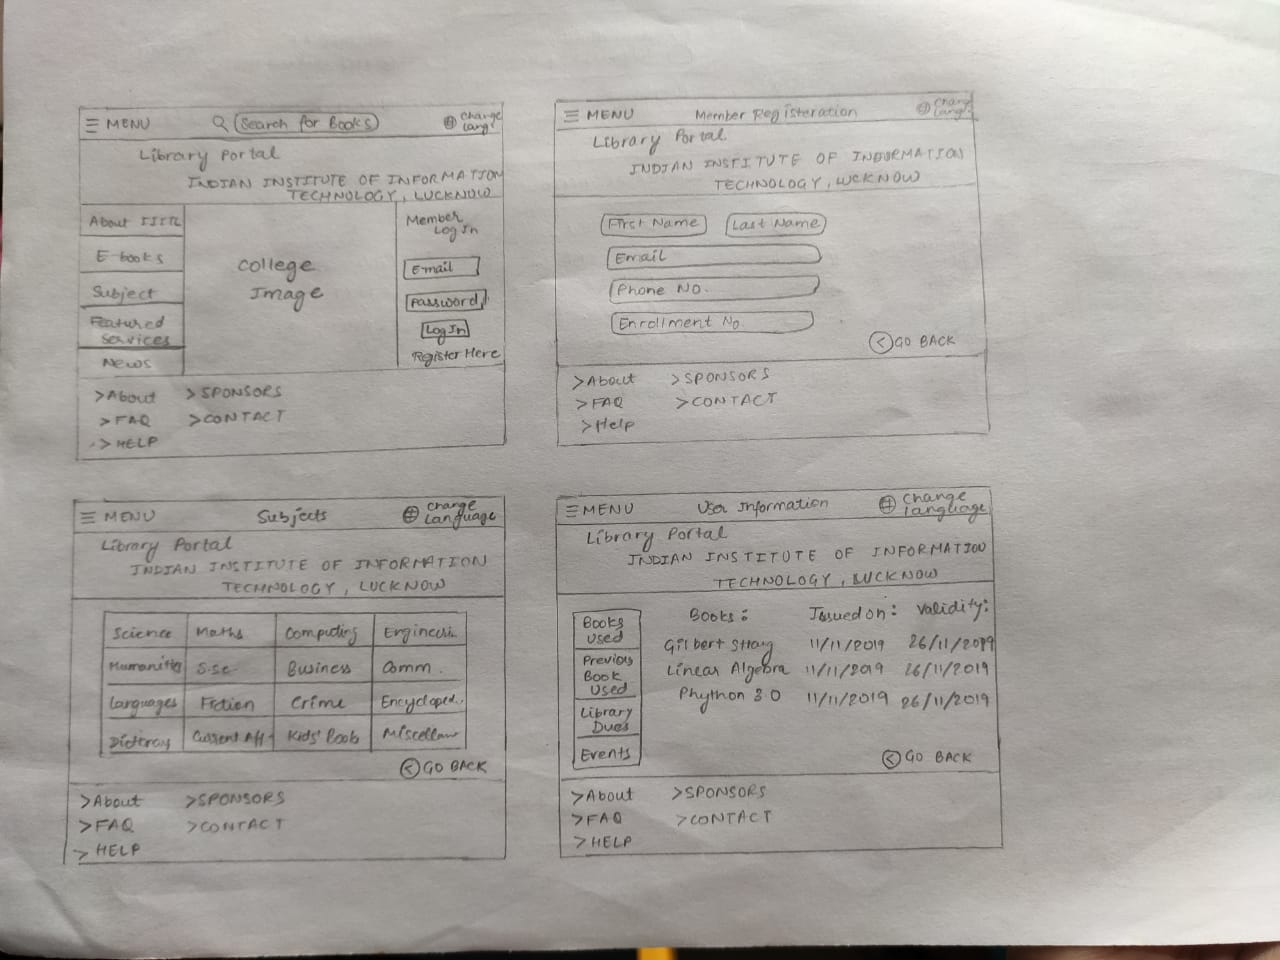 MENU Search for Books Change Lang.
Library Portal
INDIAN INSTITUTE OF INFORMATION
TECHNOLOGY, LUCKNOW
About IIITL
E-books
Subject
Featured Services
News
College
Image
Member
Log In
Email
Password
Log In
Register Here
>About >SPONSORS
>FAQ >CONTACT
>HELP
MENU Member Registeration Change Lang.
Library Portal
INDIAN INSTITUTE OF INFORMATION
TECHNOLOGY, LUCKNOW
First Name Last Name
Email
Phone No.
Enrollment No.
< GO BACK
>About >SPONSORS
>FAQ >CONTACT
>Help
MENU Subjects Change Language
Library Portal
INDIAN INSTITUTE OF INFORMATION
TECHNOLOGY, LUCKNOW
Science Maths Computing
Humanities S.Sc. Business Comm.
Languages Fiction Crime Encycloped..
Current Aff. Kids' Book
< GO BACK
>About >SPONSORS
>FAQ >CONTACT
>HELP
MENU User Information Change Language
Library Portal
INDIAN INSTITUTE OF INFORMATION
TECHNOLOGY, LUCKNOW
Books Used
Previous Book Used
Library Dues
Events
Books: Issued on: Validity:
Gilbert Strang 11/11/2019 26/11/2019
Linear Algebra 11/11/2019 26/11/2019
Phython 3.0 11/11/2019 26/11/2019
< GO BACK
>About >SPONSORS
>FAQ >CONTACT
>HELP